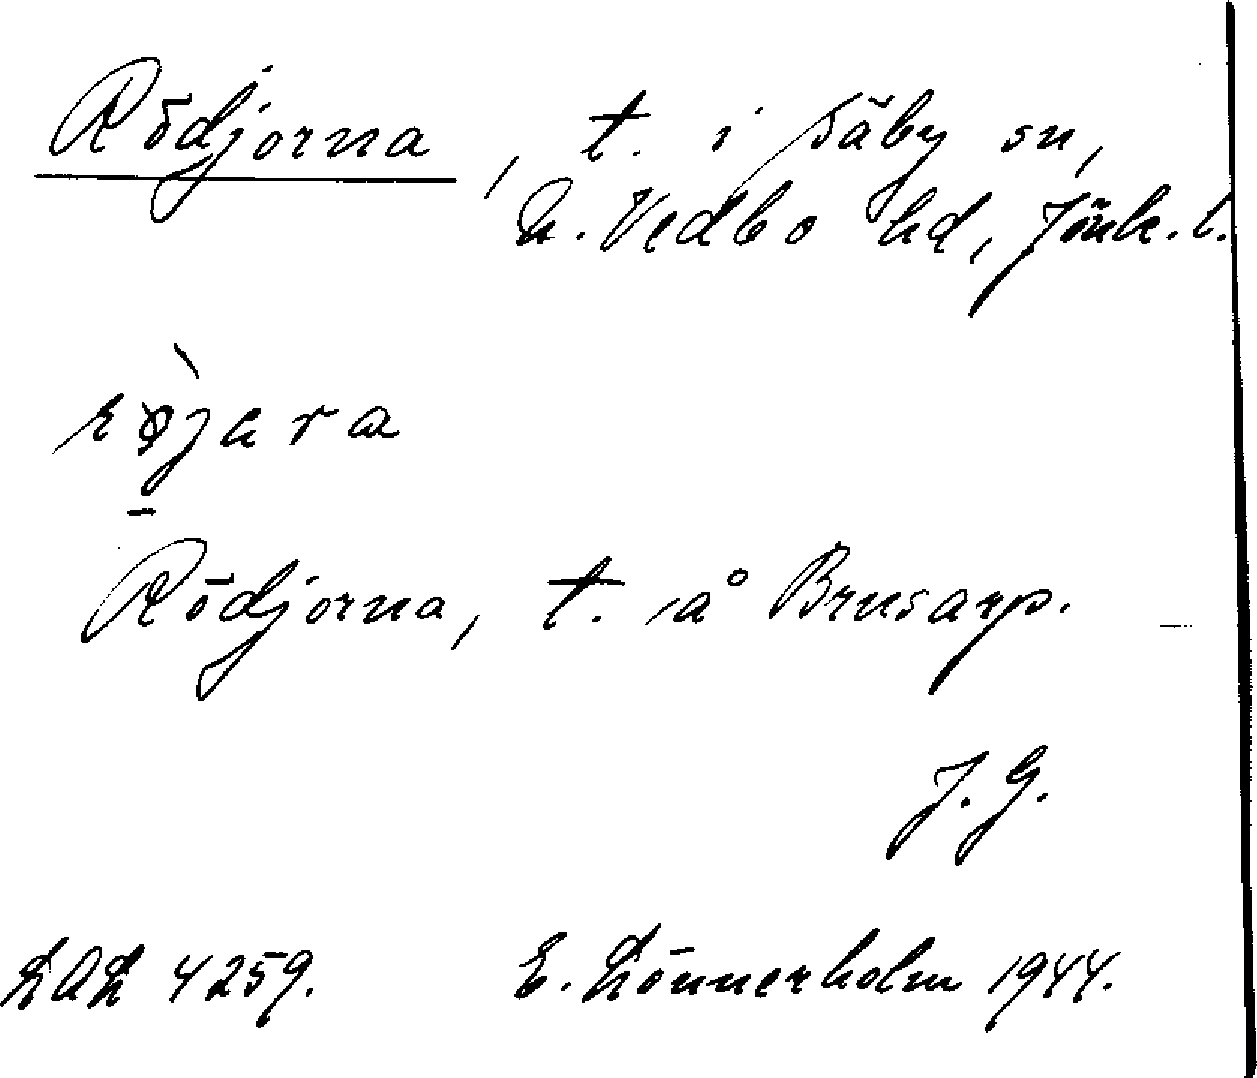 Rödjorna, t. i Säby sn,
N. Vedbo hd, Jönk. l.
Rödjorna, t. å Brusarp.
J. G.
LAL 4259. E. Lönnerholm 1944.